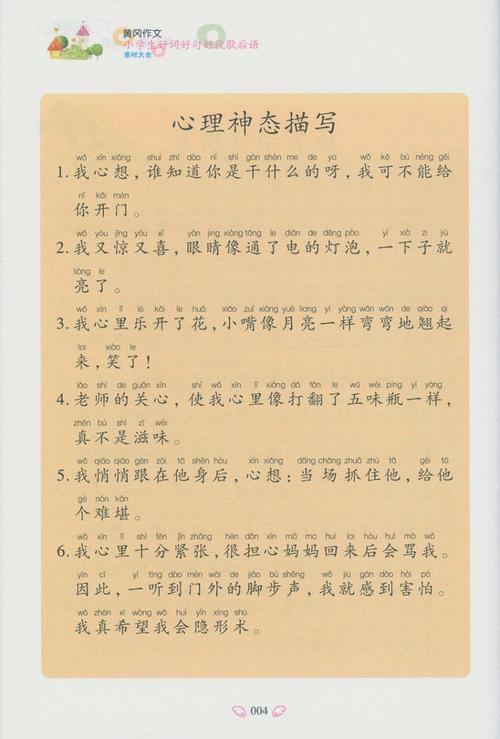 黄冈作文
小学生好词好句好段歇后语
素材大全
心理神态描写
wǒ xīn xiǎng shuí zhī dào nǐ shì gàn shén me de ya wǒ kě bù néng gěi
1.我心想，谁知道你是干什么的呀，我可不能给
nǐ kāi mén
你开门。
wǒ yòu jīng yòu xǐ yǎn jīng xiàng tōng le diàn de dēng pào yī xià zi jiù
2.我又惊又喜，眼睛像通了电的灯泡，一下子就
liàng le
亮了。
wǒ xīn lǐ lè kāi le huā xiǎo zuǐ xiàng yuè liang yī yàng wān wān de qiào qi
3.我心里乐开了花，小嘴像月亮一样弯弯地翘起
lai xiào le
来，笑了！
lǎo shī de guān xīn shǐ wǒ xīn lǐ xiàng dǎ fān le wǔ wèi píng yī yàng
4.老师的关心，使我心里像打翻了五味瓶一样，
zhēn bù shì zī wèi
真不是滋味。
wǒ qiāo qiāo gēn zài tā shēn hòu xīn xiǎng dāng chǎng zhuā zhù tā gěi tā
5.我悄悄跟在他身后，心想：当场抓住他，给他
gè nán kān
个难堪。
wǒ xīn lǐ shí fēn jǐn zhāng hěn dān xīn mā ma huí lai hòu huì mà wǒ
6.我心里十分紧张，很担心妈妈回来后会骂我。
yīn cǐ yī tīng dào mén wài de jiǎo bù shēng wǒ jiù gǎn dào hài pà
因此，一听到门外的脚步声，我就感到害怕。
wǒ zhēn xī wàng wǒ huì yǐn xíng shù
我真希望我会隐形术。
004